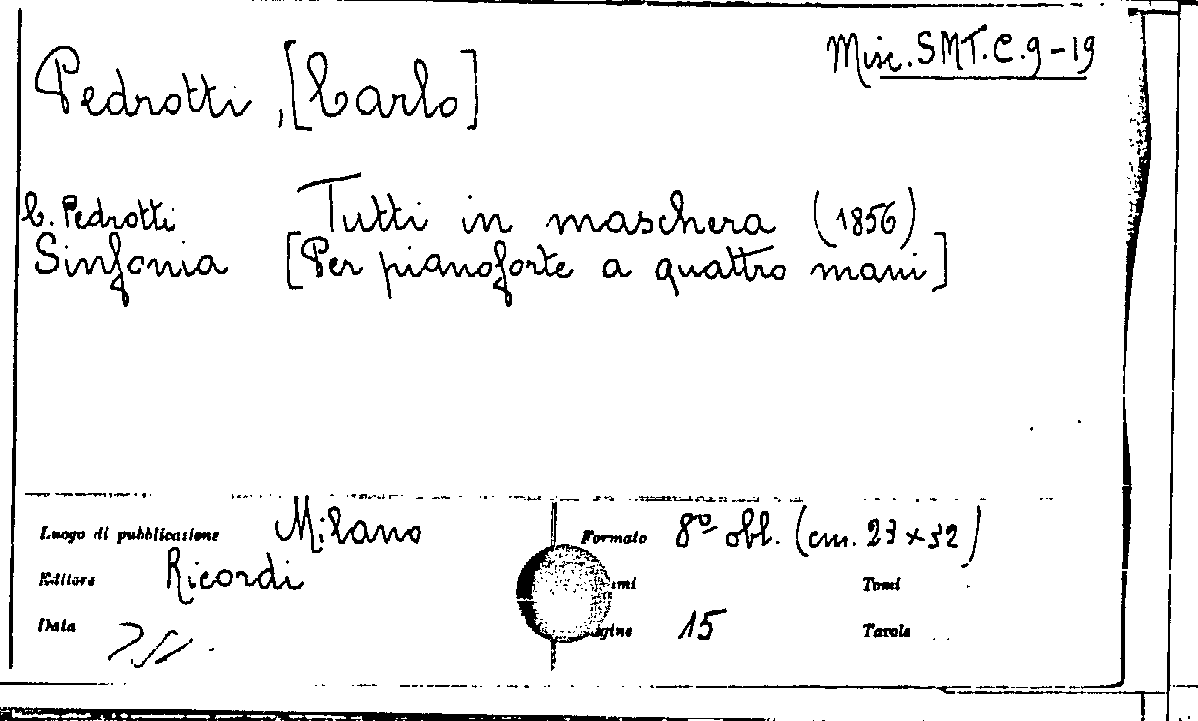 Misc. SMT. C. 9-19
Pedrotti, [Carlo]
C. Pedrotti Tutti in maschera (1856)
Sinfonia [Per pianoforte a quattro mani]
Luogo di pubblicazione Milano Formato 8º obl. (cm. 23 x 32)
Editore Ricordi Tomi
Data Pagine 15 Tavole